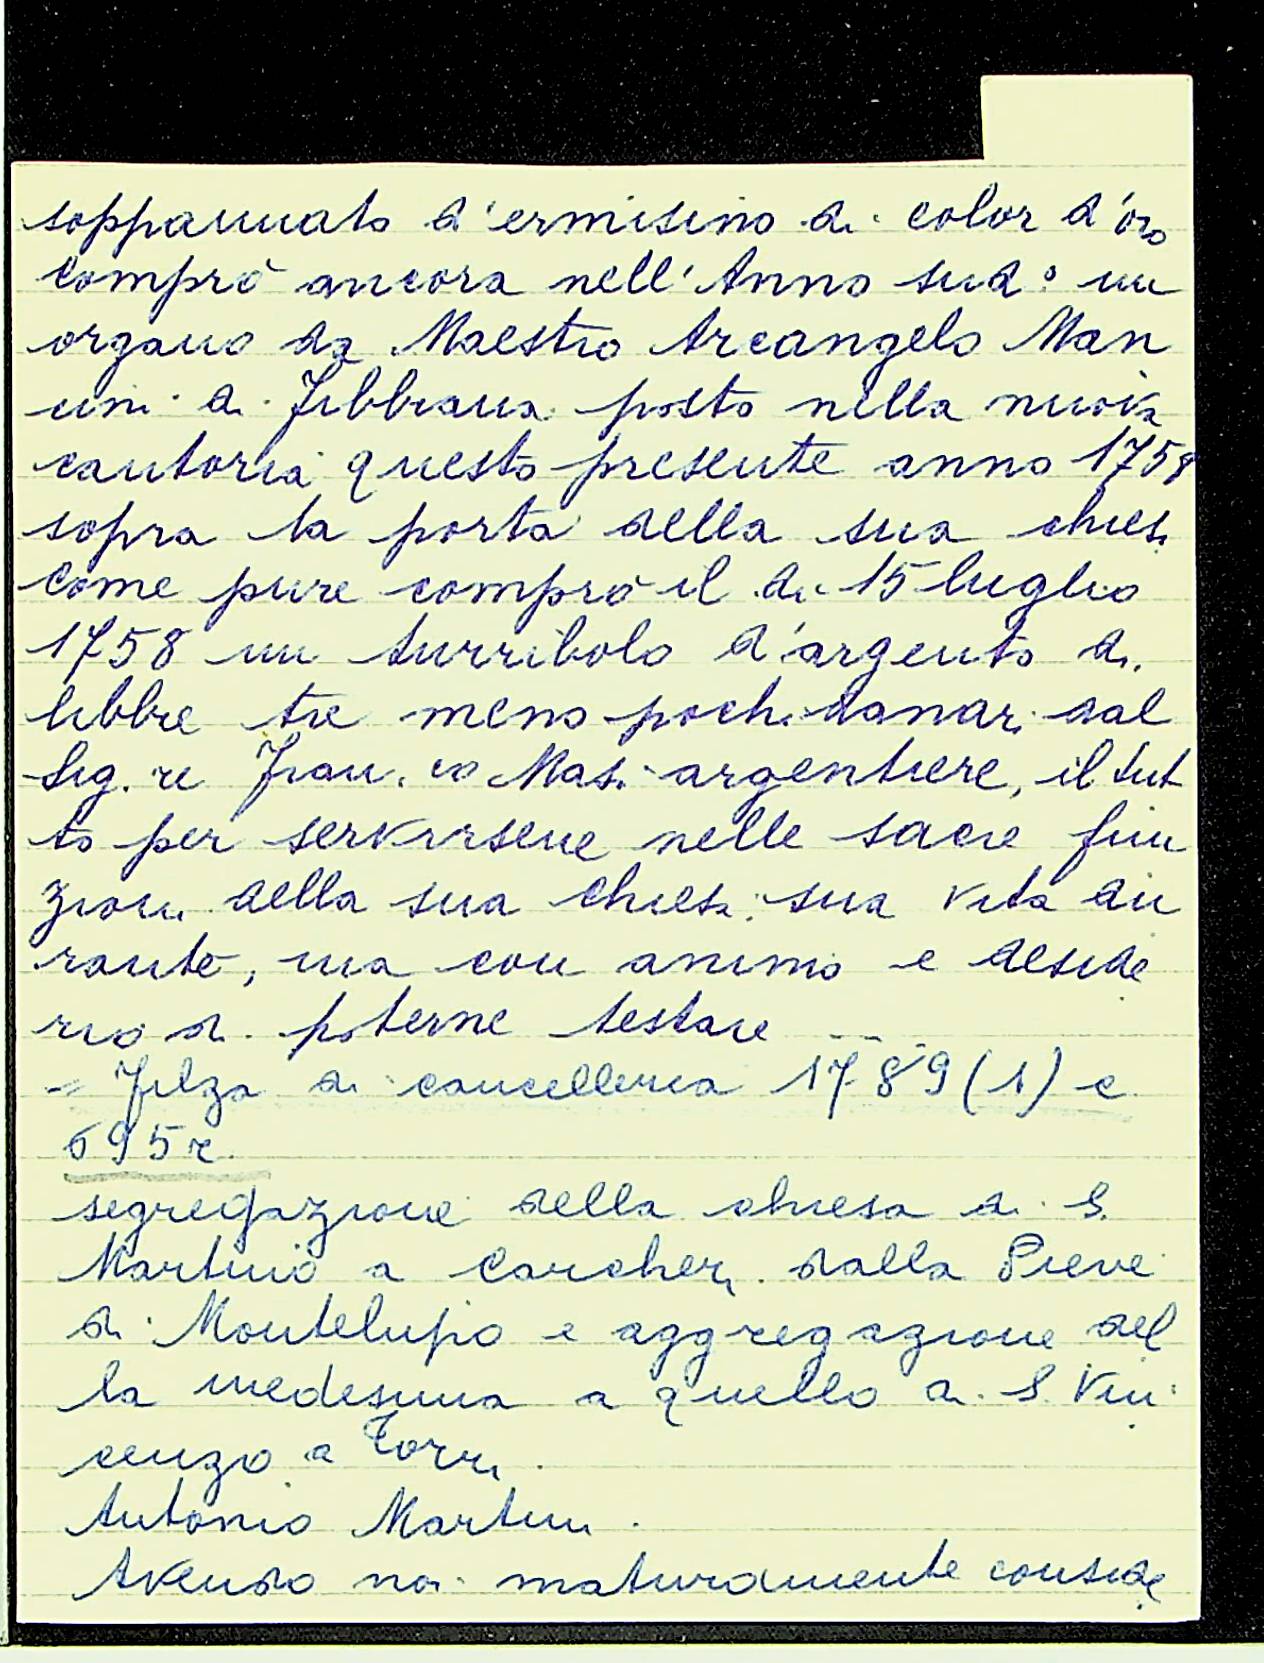 soppannato d'ermisino di color d'oro
comprò ancora nell'Anno sud.° un
organo da Maestro Arcangelo Man
cini di Fibbiana posto nella nuova
cantoria questo presente anno 1758
sopra la porta della sua chiesa
come pure comprò il dì 15 luglio
1758 un turribolo d'argento di
libbre tre meno pochi danari dal
Sig. re Fran. co Masi argentiere, il tut
to per servirsene nelle sacre fun
zioni della sua chiesa, sua vita du
rante, ma con animo e deside
rio di poterne testare ...
= Filza di cancelleria 1789 (1) c
695 r.
segregazione della chiesa di S.
Martino a Carcheri dalla Pieve
di Montelupo e aggregazione del
la medesima a quello di S. Vin
cenzo a Torri.
Antonio Martini.
Avendo noi maturamente conside